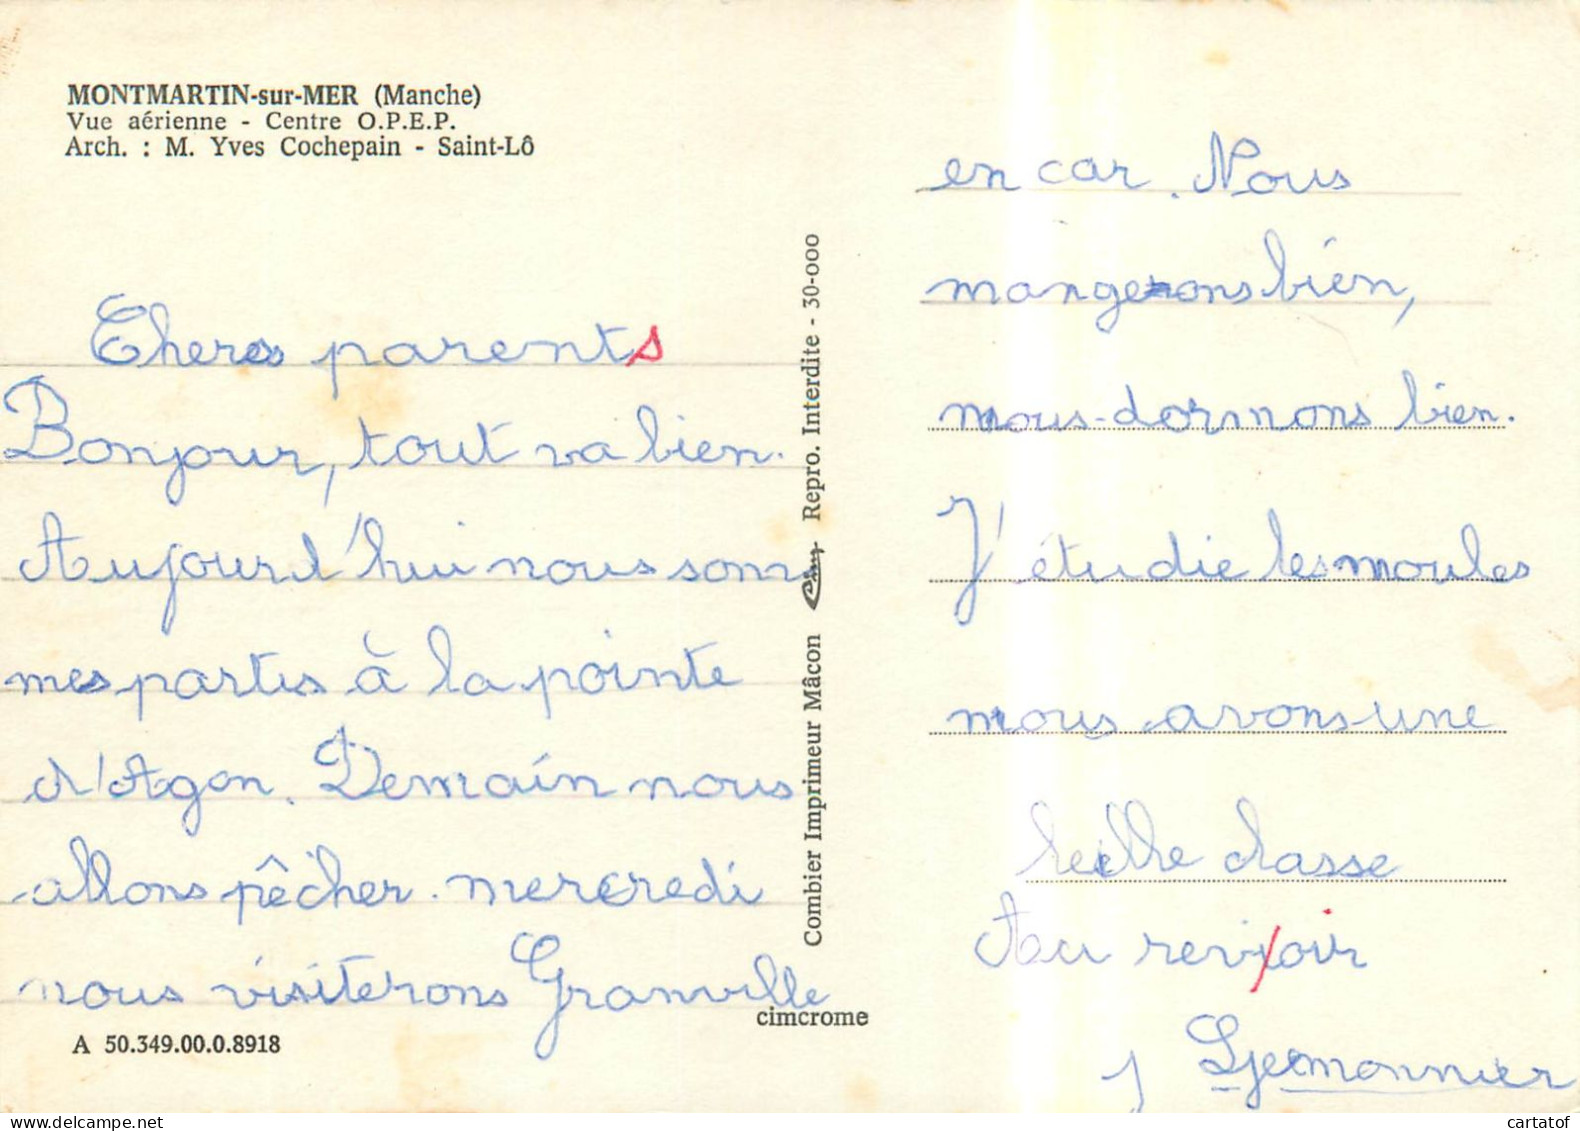 MONTMARTIN-sur-MER (Manche)
Vue aérienne - Centre O.P.E.P.
Arch. : M. Yves Cochepain - Saint-Lô
Chers parents
Bonjour, tout va bien.
Aujourd'hui nous som
mes partis à la pointe
d'Agon. Demain nous
allons pêcher. mercredi
nous visiterons Granville
A 50.349.00.0.8918
Combier Imprimeur Mâcon Cim Repro. Interdite - 30-000
cimcrome
en car. Nous
mangeons bien,
nous dormons bien.
J'étudie les moules
nous avons une
belle classe
Au revoir
J Lemonnier
cartatof